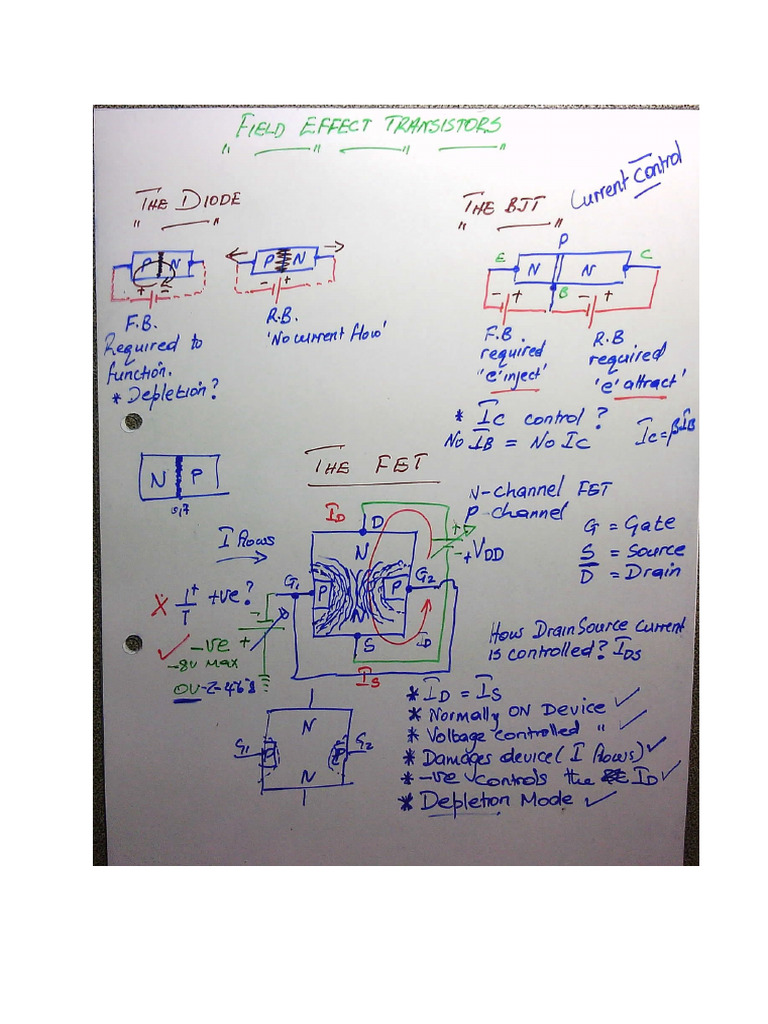 FIELD EFFECT TRANSISTORS
THE DIODE
P N
+ -
F.B.
Required to
function.
* Depletion?
P N
- +
R.B.
'No current flow'
THE BJT
Current Control
P
E C
N N
B
- + - +
F.B.
required
'e' inject'
R.B
required
'e' attract'
* IC control?
No IB = No IC
IC = βIB
N P
THE FET
N-channel FET
P-channel
G = Gate
S = Source
D = Drain
I flows
ID
D
N
+
- + VDD
G1 P P G2
N
S
ID
IS
X + +ve?
-
+
-ve
-8V Max
0V-2-4-6-8
How Drain Source current
is controlled? IDS
* ID = IS
* Normally ON Device
* Voltage controlled "
* Damages device (I flows)
* -ve controls the ID
* Depletion Mode
N
G1 P P G2
N